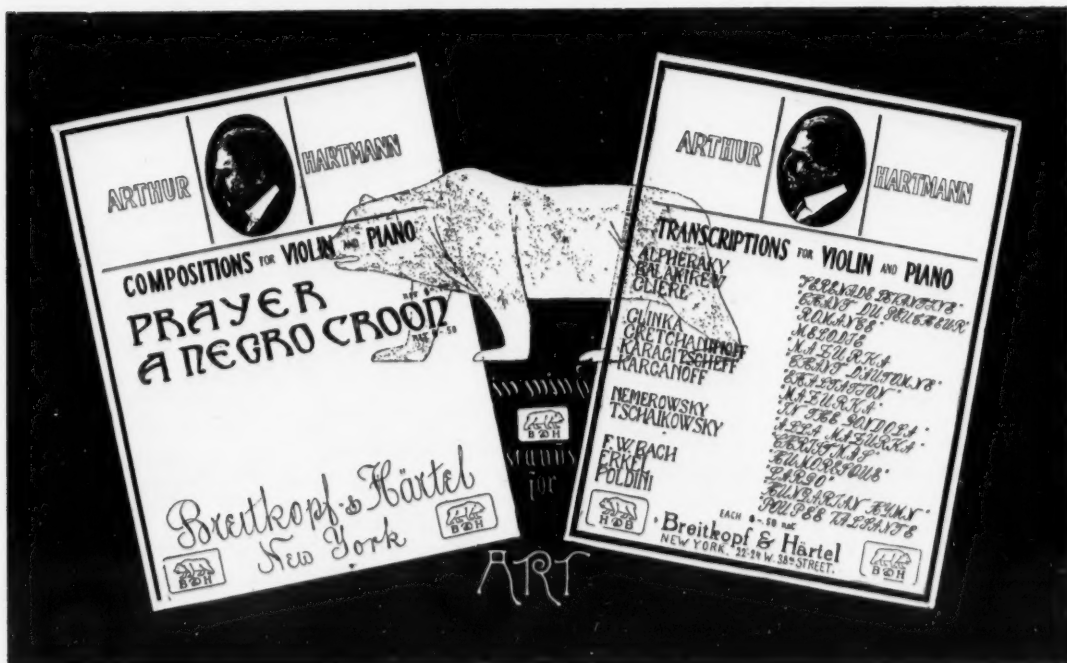 ARTHUR HARTMANN
COMPOSITIONS FOR VIOLIN AND PIANO
PRAYER
A NEGRO CROON
Breitkopf & Härtel
New York
B H
B H
B H
stands
for
ART
ARTHUR HARTMANN
TRANSCRIPTIONS FOR VIOLIN AND PIANO
ALPHERAKY
BALAKIREW
GLIERE
GLINKA
KARAGITSCHEFF
KARGANOFF
NEMEROWSKY
TSCHAIKOWSKY
F. W. BACH
ERKEL
POLDINI
"CHANT DU PECHEUR"
"ROMANZE"
"MELODIE"
"MAZURKA"
"CHANT D'AUTOMNE"
"EXALTATION"
"MAZURKA"
"IN THE GONDOLA"
"ALLA MAZURKA"
"HUMORESQUE"
"LARGO"
"HUNGARIAN HYMN"
EACH $-.50 net
Breitkopf & Härtel
NEW YORK. 22-24 W. 38th STREET.
H B
B H